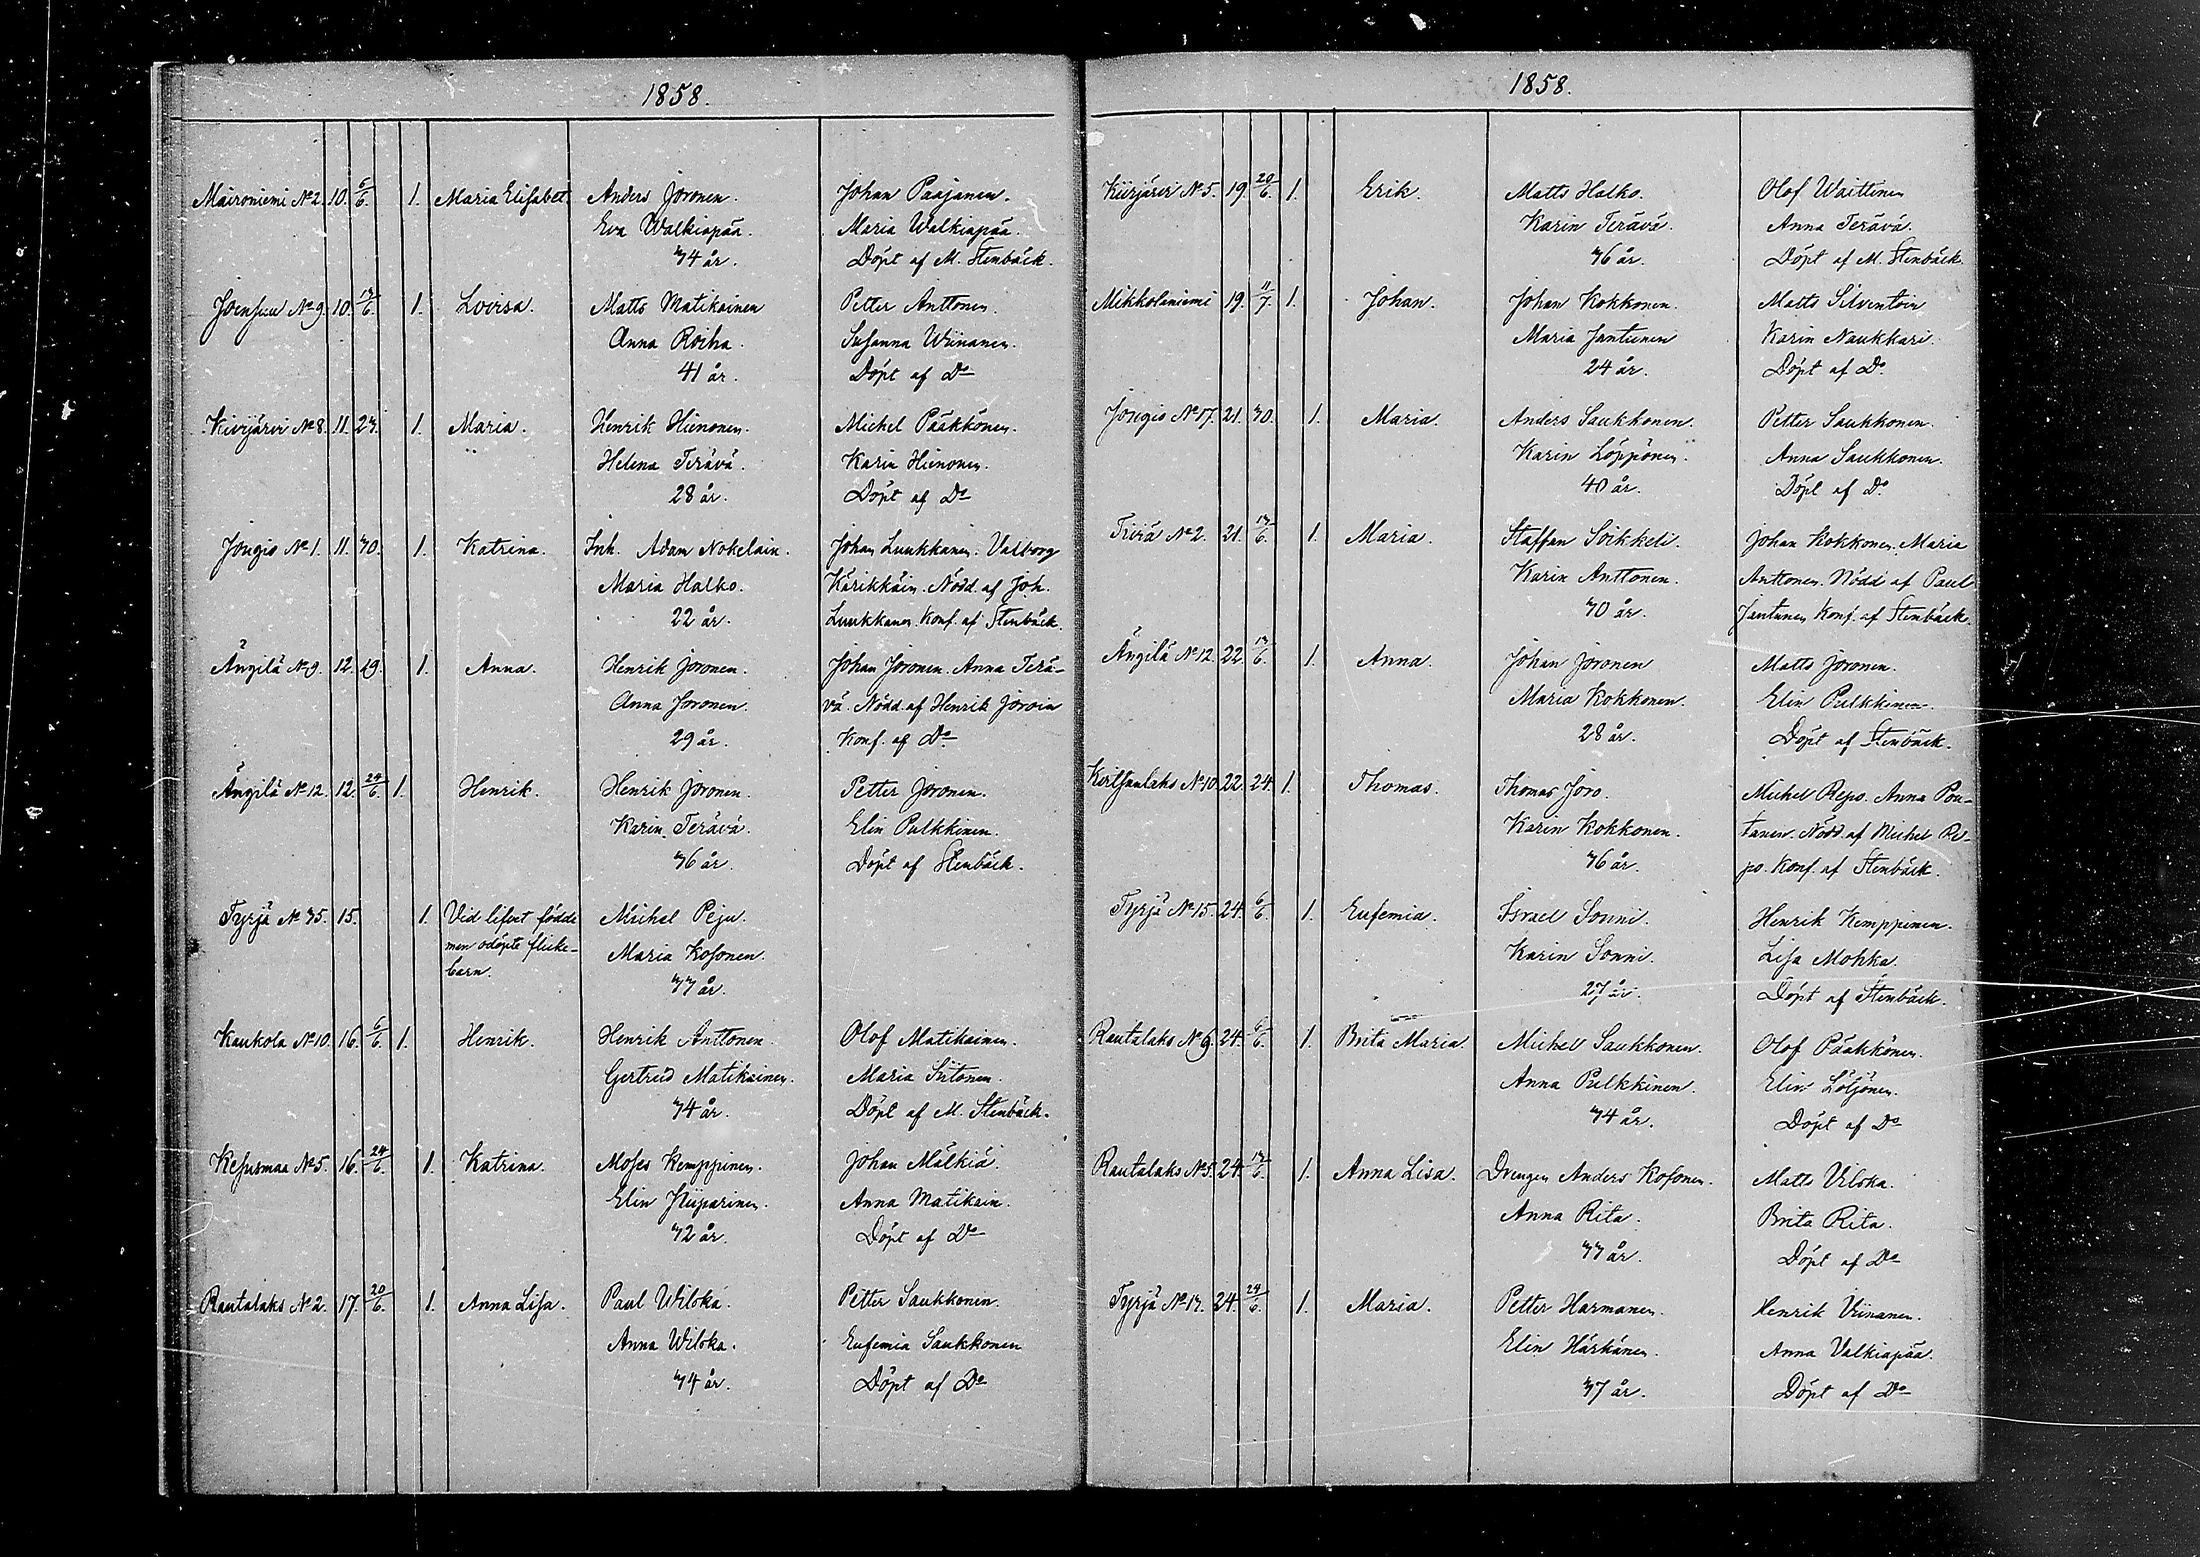 1858.
Maironiemi No 2. 10. 6/6. 1. Maria Elisabet. Anders Joronen. Johan Paajanen.
Eva Walkiapää. Maria Walkiapää.
34 år. Döpt af M. Stenbäck.
Joensuu No 9. 10. 13/6. 1. Lovisa. Matts Matikainen Petter Anttonen.
Anna Roiha. Susanna Wiinanen.
41 år. Döpt af Do
Kivijärvi No 8. 11. 23. 1. Maria. Henrik Hienonen. Michel Pääkkönen.
Helena Terävä. Karin Hienonen.
28 år. Döpt af Do
Jougio No 1. 11. 30. 1. Katrina. Inh. Adam Nokelain. Johan Luukkanen. Valborg
Maria Halko. Kärikkäin. Nödd. af Joh.
22 år. Luukkanen. Konf. af Stenbäck.
Ängilä No 9. 12. 19. 1. Anna. Henrik Joronen. Johan Joronen. Anna Terä-
Anna Joronen. vä. Nödd. af Henrik Joroin
29 år. Konf. af Do
Ängilä No 12. 12. 24/6. 1. Henrik. Henrik Joronen. Petter Joronen.
Karin Terävä. Elin Pulkkinen.
36 år. Döpt af Stenbäck.
Tyrjä No 35. 15. 1. Vid lifvet födde Michel Peju.
men odöpte flicke- Maria Kosonen.
barn. 33 år.
Kaukola No 10. 16. 6/6. 1. Henrik. Henrik Anttonen. Olof Matikainen.
Gertrud Matikainen. Maria Siitonen.
34 år. Döpt af M. Stenbäck.
Kesusmaa No 5. 16. 24/6. 1. Katrina. Moses Kemppinen. Johan Mälkiä.
Elin Kiiparinen. Anna Matikain.
32 år. Döpt af Do
Rautalaks No 2. 17. 20/6. 1. Anna Lisa. Paul Wilska. Petter Saukkonen.
Anna Wilska. Eufemia Saukkonen
34 år. Döpt af Do
1858.
Kivijärvi No 5. 19. 20/6. 1. Erik. Matts Halko. Olof Waittinen
Karin Terävä. Anna Terävä.
36 år. Döpt af M. Stenbäck.
Mikkolaniemi 19. 11/7. 1. Johan. Johan Kokkonen. Matts Silventoin
Maria Jantunen Karin Naukkari.
24 år. Döpt af Do
Jougio No 17. 21. 30. 1. Maria. Anders Saukkonen. Petter Saukkonen.
Karin Löppönen. Anna Saukkonen.
40 år. Döpt af Do
Tiviä No 2. 21. 13/6. 1. Maria. Staffan Soikkeli. Johan Kokkonen. Maria
Karin Anttonen. Anttonen. Nödd af Paul
30 år. Jantunen Konf. af Stenbäck.
Ängilä No 12. 22. 13/6. 1. Anna. Johan Joronen Matts Joronen.
Maria Kokkonen. Elin Pulkkinen.
28 år. Döpt af Stenbäck.
No 10. 22. 24. 1. Thomas. Thomas Joro. Michel Repo. Anna Pou-
Karin Kokkonen. tanen. Nödd. af Michel Re-
36 år. po. Konf. af Stenbäck.
Tyrjä No 15. 24. 6/6. 1. Eufemia. Israel Sonni. Henrik Kemppinen.
Karin Sonni. Lisa Mohka.
27 år. Döpt af Stenbäck.
Rautalaks No 9. 24. 6/6. 1. Brita Maria. Michel Saukkonen. Olof Pääkkönen.
Anna Pulkkinen. Elin Löljönen.
34 år. Döpt af Do
Rautalaks No 5. 24. 13/6. 1. Anna Lisa. Drengen Anders Kosonen. Matts Vilska.
Anna Rita. Brita Rita.
33 år. Döpt af Do
Tyrjä No 13. 24. 24/6. 1. Maria. Petter Harmanen. Henrik Viinanen.
Elin Härkänen. Anna Valkiapää.
37 år. Döpt af Do